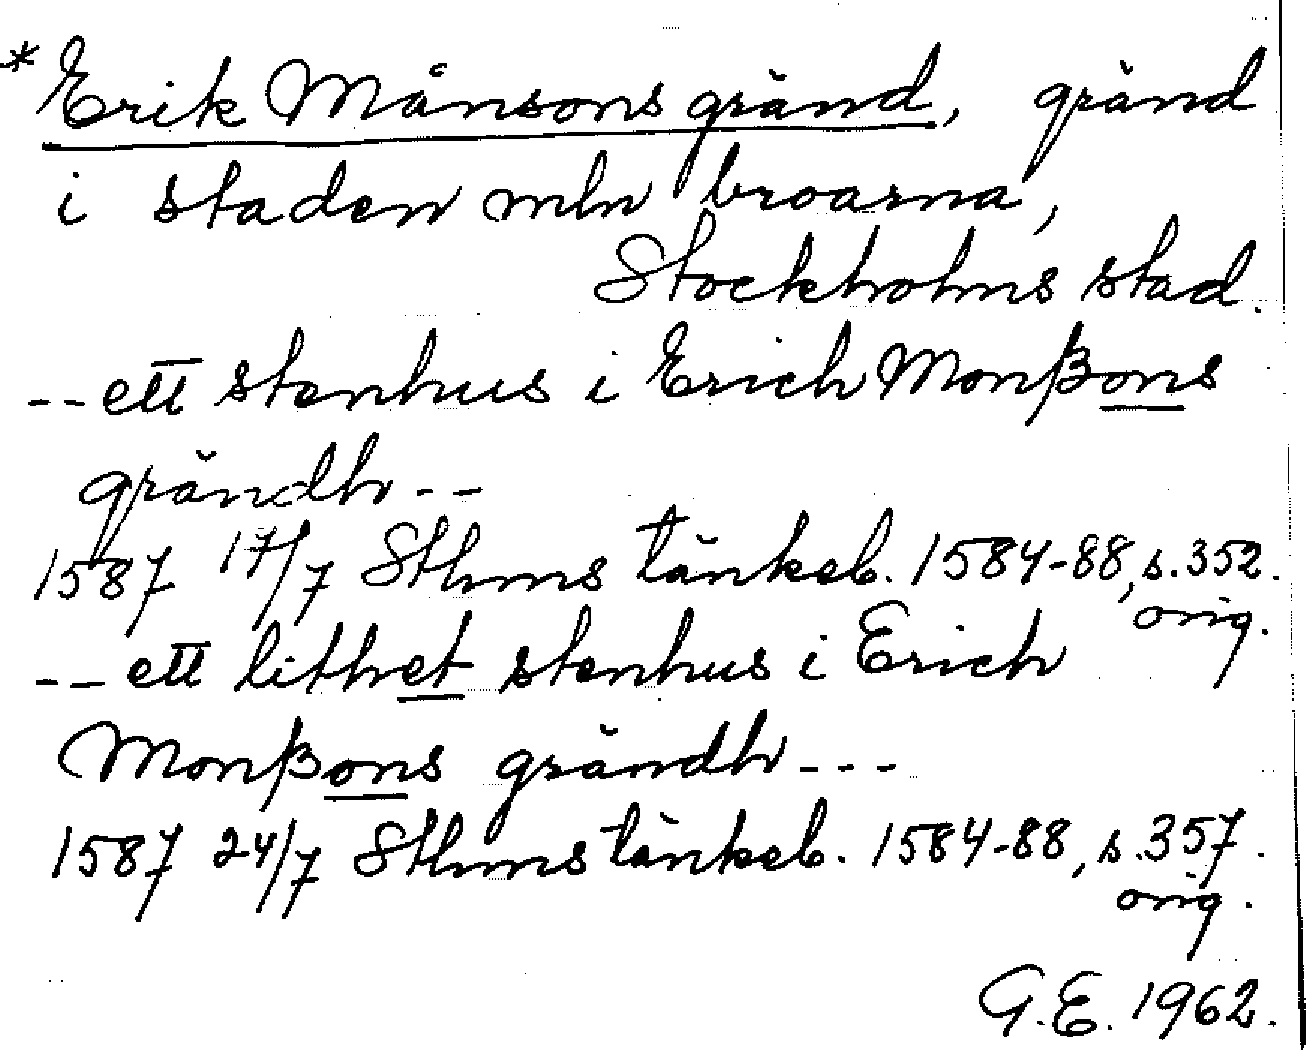 * Erik Månsons gränd, gränd
i staden mln broarna,
Stockholms stad.
-- ett stenhus i Erich Monßons
grändh --
1587 17/7 Sthms tänkeb. 1584-88, s. 352.
orig.
-- ett lithet stenhus i Erich
Monßons grändh ---
1587 24/7 Sthms tänkeb. 1584-88, s. 357.
orig.
G.E. 1962.